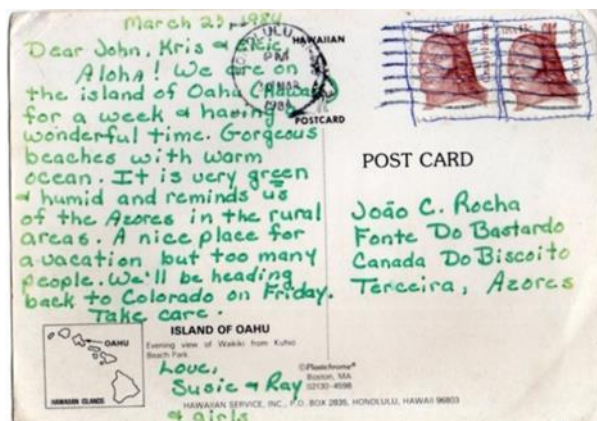 March 23, 1984
Dear John, Kris & Eric,
Aloha! We are on
the island of Oahu, Hawaii
for a week & having a
wonderful time. Gorgeous
beaches with warm
ocean. It is very green
& humid and reminds us
of the Azores in the rural
areas. A nice place for
a vacation but too many
people. We'll be heading
back to Colorado on Friday.
Take care.
Love,
Susie & Ray
& girls
HONOLULU
PM
MAR
1984
HAWAIIAN
POSTCARD
POST CARD
João C. Rocha
Fonte Do Bastardo
Canada Do Biscoito
Terceira, Azores
OAHU
HAWAIIAN ISLANDS
ISLAND OF OAHU
Evening view of Waikiki from Kuhio
Beach Park
©Plastichrome®
Boston, MA
02130-4598
HAWAIIAN SERVICE, INC., P.O. BOX 2835, HONOLULU, HAWAII 96803